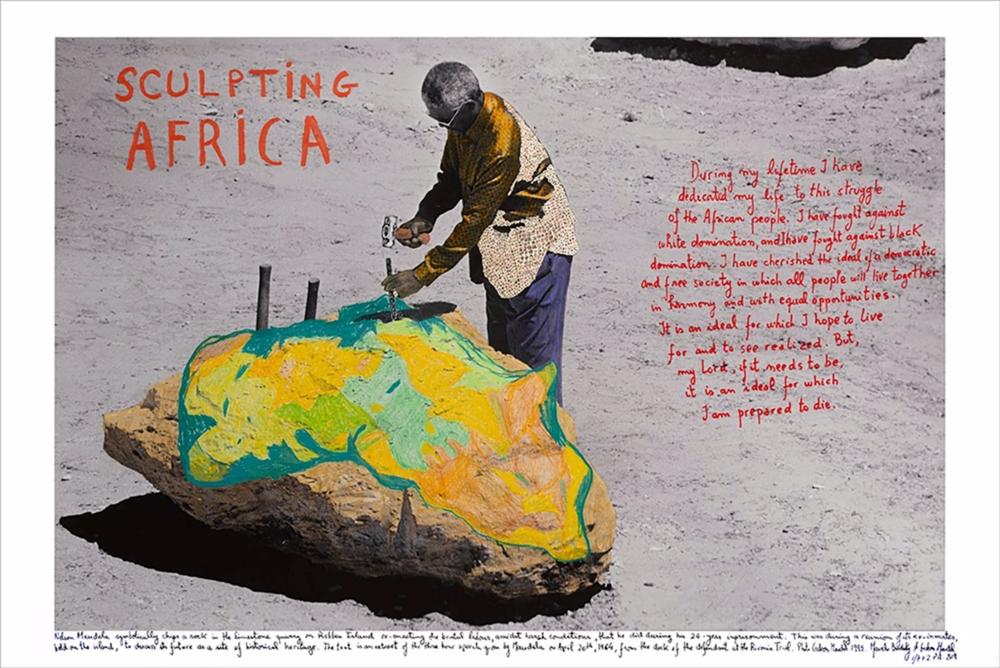 SCULPTING
AFRICA
During my lifetime I have
dedicated my life to this struggle
of the African people. I have fought against
white domination, and I have fought against black
domination. I have cherished the ideal of a democratic
and free society in which all people will live together
in harmony and with equal opportunities.
It is an ideal for which I hope to live
for and to see realized. But,
my Lord, if it needs to be,
it is an ideal for which
I am prepared to die.
Nelson Mandela symbolically chips a rock in the limestone quarry on Robben Island re-enacting the brutal labour, amidst harsh conditions, that he did during his imprisonment. This was during a reunion of its ex-inmates,
held on the island, to discuss its future as a site of historical heritage. The text is an extract of the three hour speech given by Mandela on April 20th, 1964, from the dock of the defendant at the Rivonia Trial. 1995.